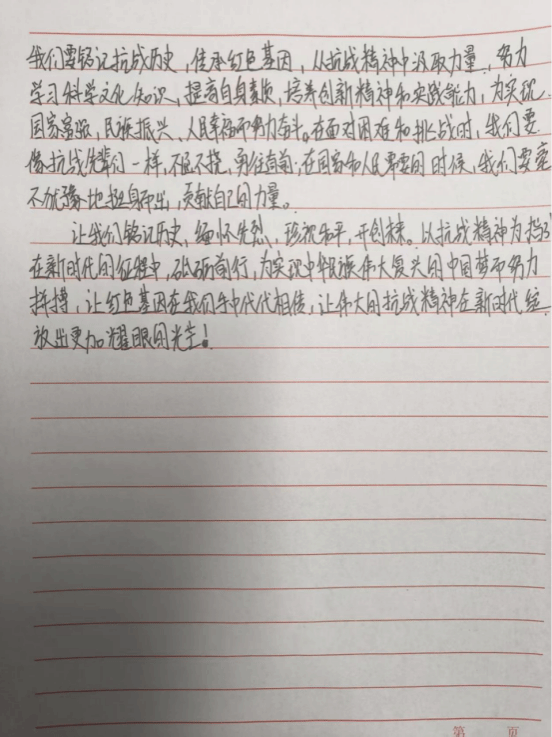 我们要铭记抗战历史，传承红色基因，从抗战精神中汲取力量，努力
学习科学文化知识，提高自身素质，培养创新精神和实践能力，为实现
国家富强、民族振兴、人民幸福而努力奋斗。在面对困难和挑战时，我们要
像抗战先辈们一样，不屈不挠，勇往直前；在国家和人民需要的时候，我们要毫
不犹豫地挺身而出，贡献自己的力量。
让我们铭记历史、缅怀先烈、珍视和平、开创未来。以抗战精神为
在新时代的征程中，砥砺前行，为实现中华民族伟大复兴的中国梦而努力
拼搏，让红色基因在我们手中代代相传，让伟大的抗战精神在新时代绽
放出更加耀眼的光芒！
第 页